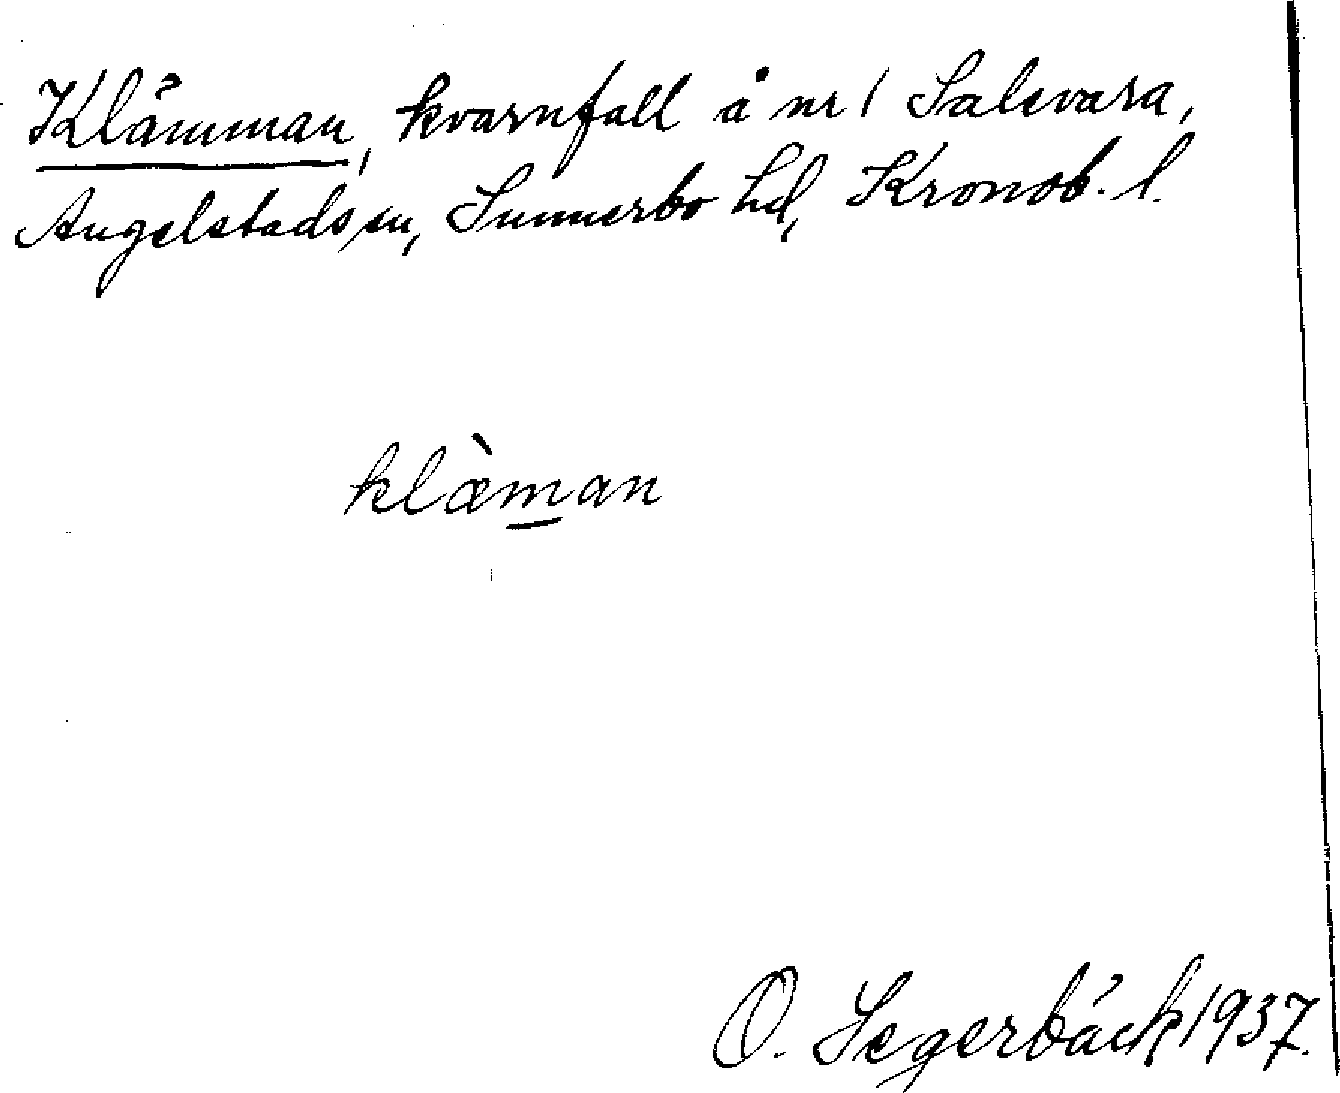 Klämman, kvarnfall å nr 1 Salsvara,
Angelstads sn, Sunnerbo hd, Kronob. l.
klæ̀man
O. Segerbäck 1937.